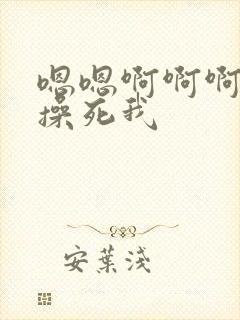 嗯嗯啊啊啊
操死我
安葉淺